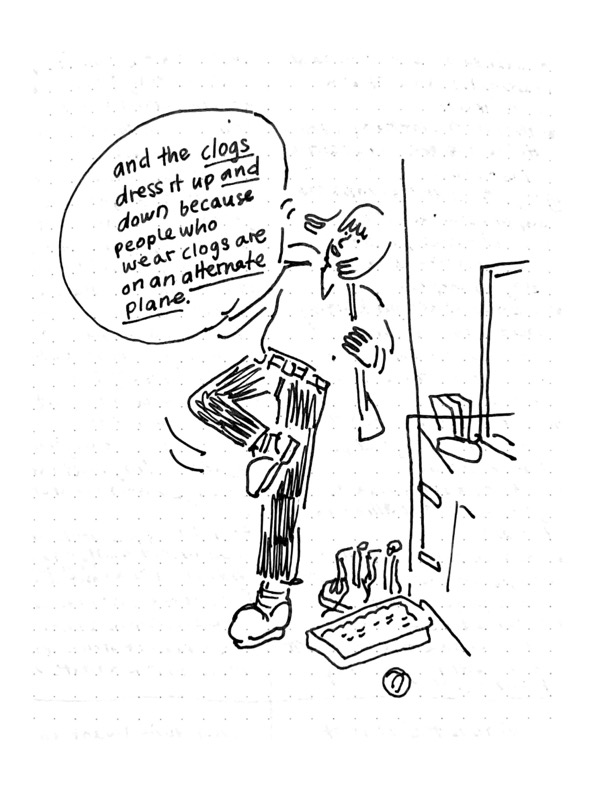 and the clogs
dress it up and
down because
people who
wear clogs are
on an alternate
plane.